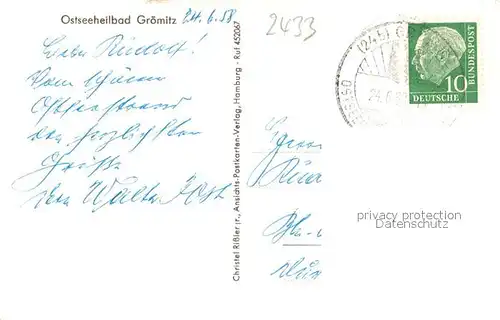 Ostseeheilbad Grömitz 24.6.58
Lieber Rudolf!
Vom schönen
Ostseestrand
die herzlichsten
Grüße
Dein Walter
Christel Rißler jr., Ansichts-Postkarten-Verlag, Hamburg - Ruf 452067
2433
(24b) G
24.6.5
OSTSEEBAD
10
DEUTSCHE
BUNDESPOST
Herrn
privacy protection
Datenschutz